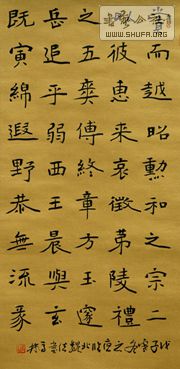 而越昭勳和之宗二
彼惠來哀徵第陵禮
之五奕傅終章方玉邃
岳追乎弱西王晨與玄
既寅綿遐野恭無流彖
WWW.SHUFA.ORG